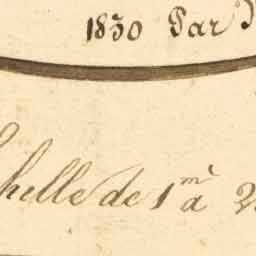 1830 Par
helle de 1m à 2